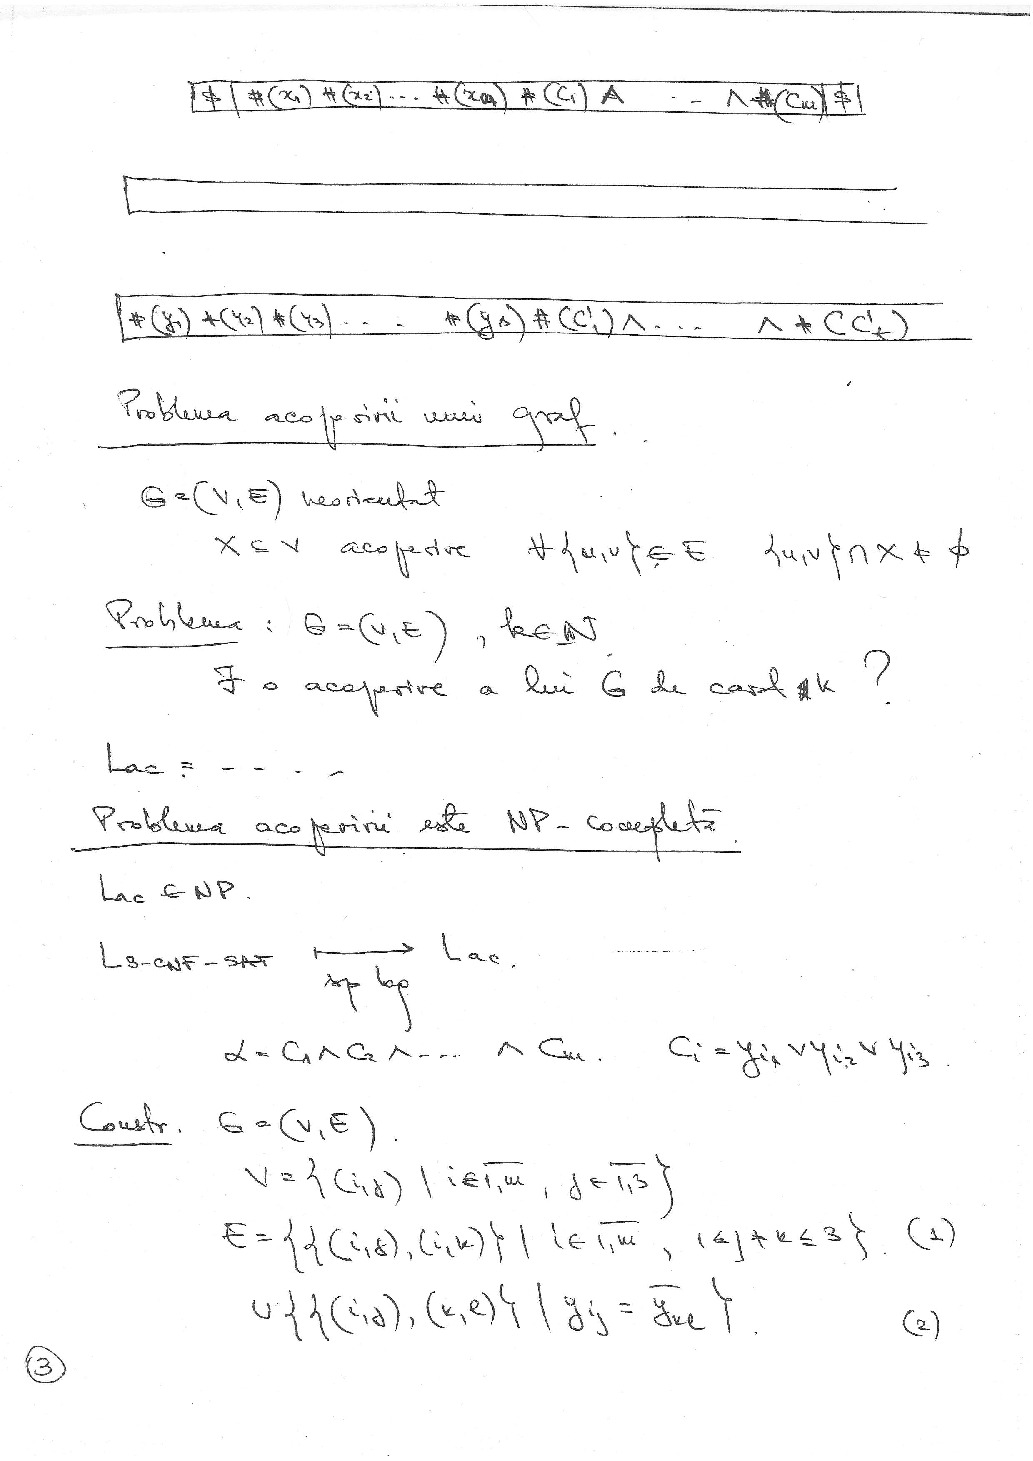 $ #(x₁) #(x₂) ... #(xₙ) #(C₁) ∧ ... ∧ #(Cₘ) $
#(y₁) #(y₂) #(y₃) .... #(yₛ) #(C'₁) ∧ .... ∧ #(C'ₜ)
Problema acoperirii unui graf.
G=(V,E) neorientat
X⊆V acoperire ∀{u,v}∈E {u,v}∩X≠∅
Problema: G=(V,E), k∈ℕ
∃ o acoperire a lui G de card k?
Lac = - - . . -
Problema acoperirii este NP-completă.
Lac ∈ NP.
L3-CNF-SAT ⟼ Lac.
sp log
α = C₁∧C₂∧... ∧ Cₘ. Cᵢ = yᵢ₁ ∨ yᵢ₂ ∨ yᵢ₃.
Constr. G=(V,E).
V={(i,j) | i∈1,m̅, j∈1,3̅}
E={{(i,j),(i,k)} | i∈1,m̅, 1≤j≠k≤3}. (1)
∪{{(i,j),(k,e)} | yᵢⱼ = y̅ₖₑ}. (2)
3